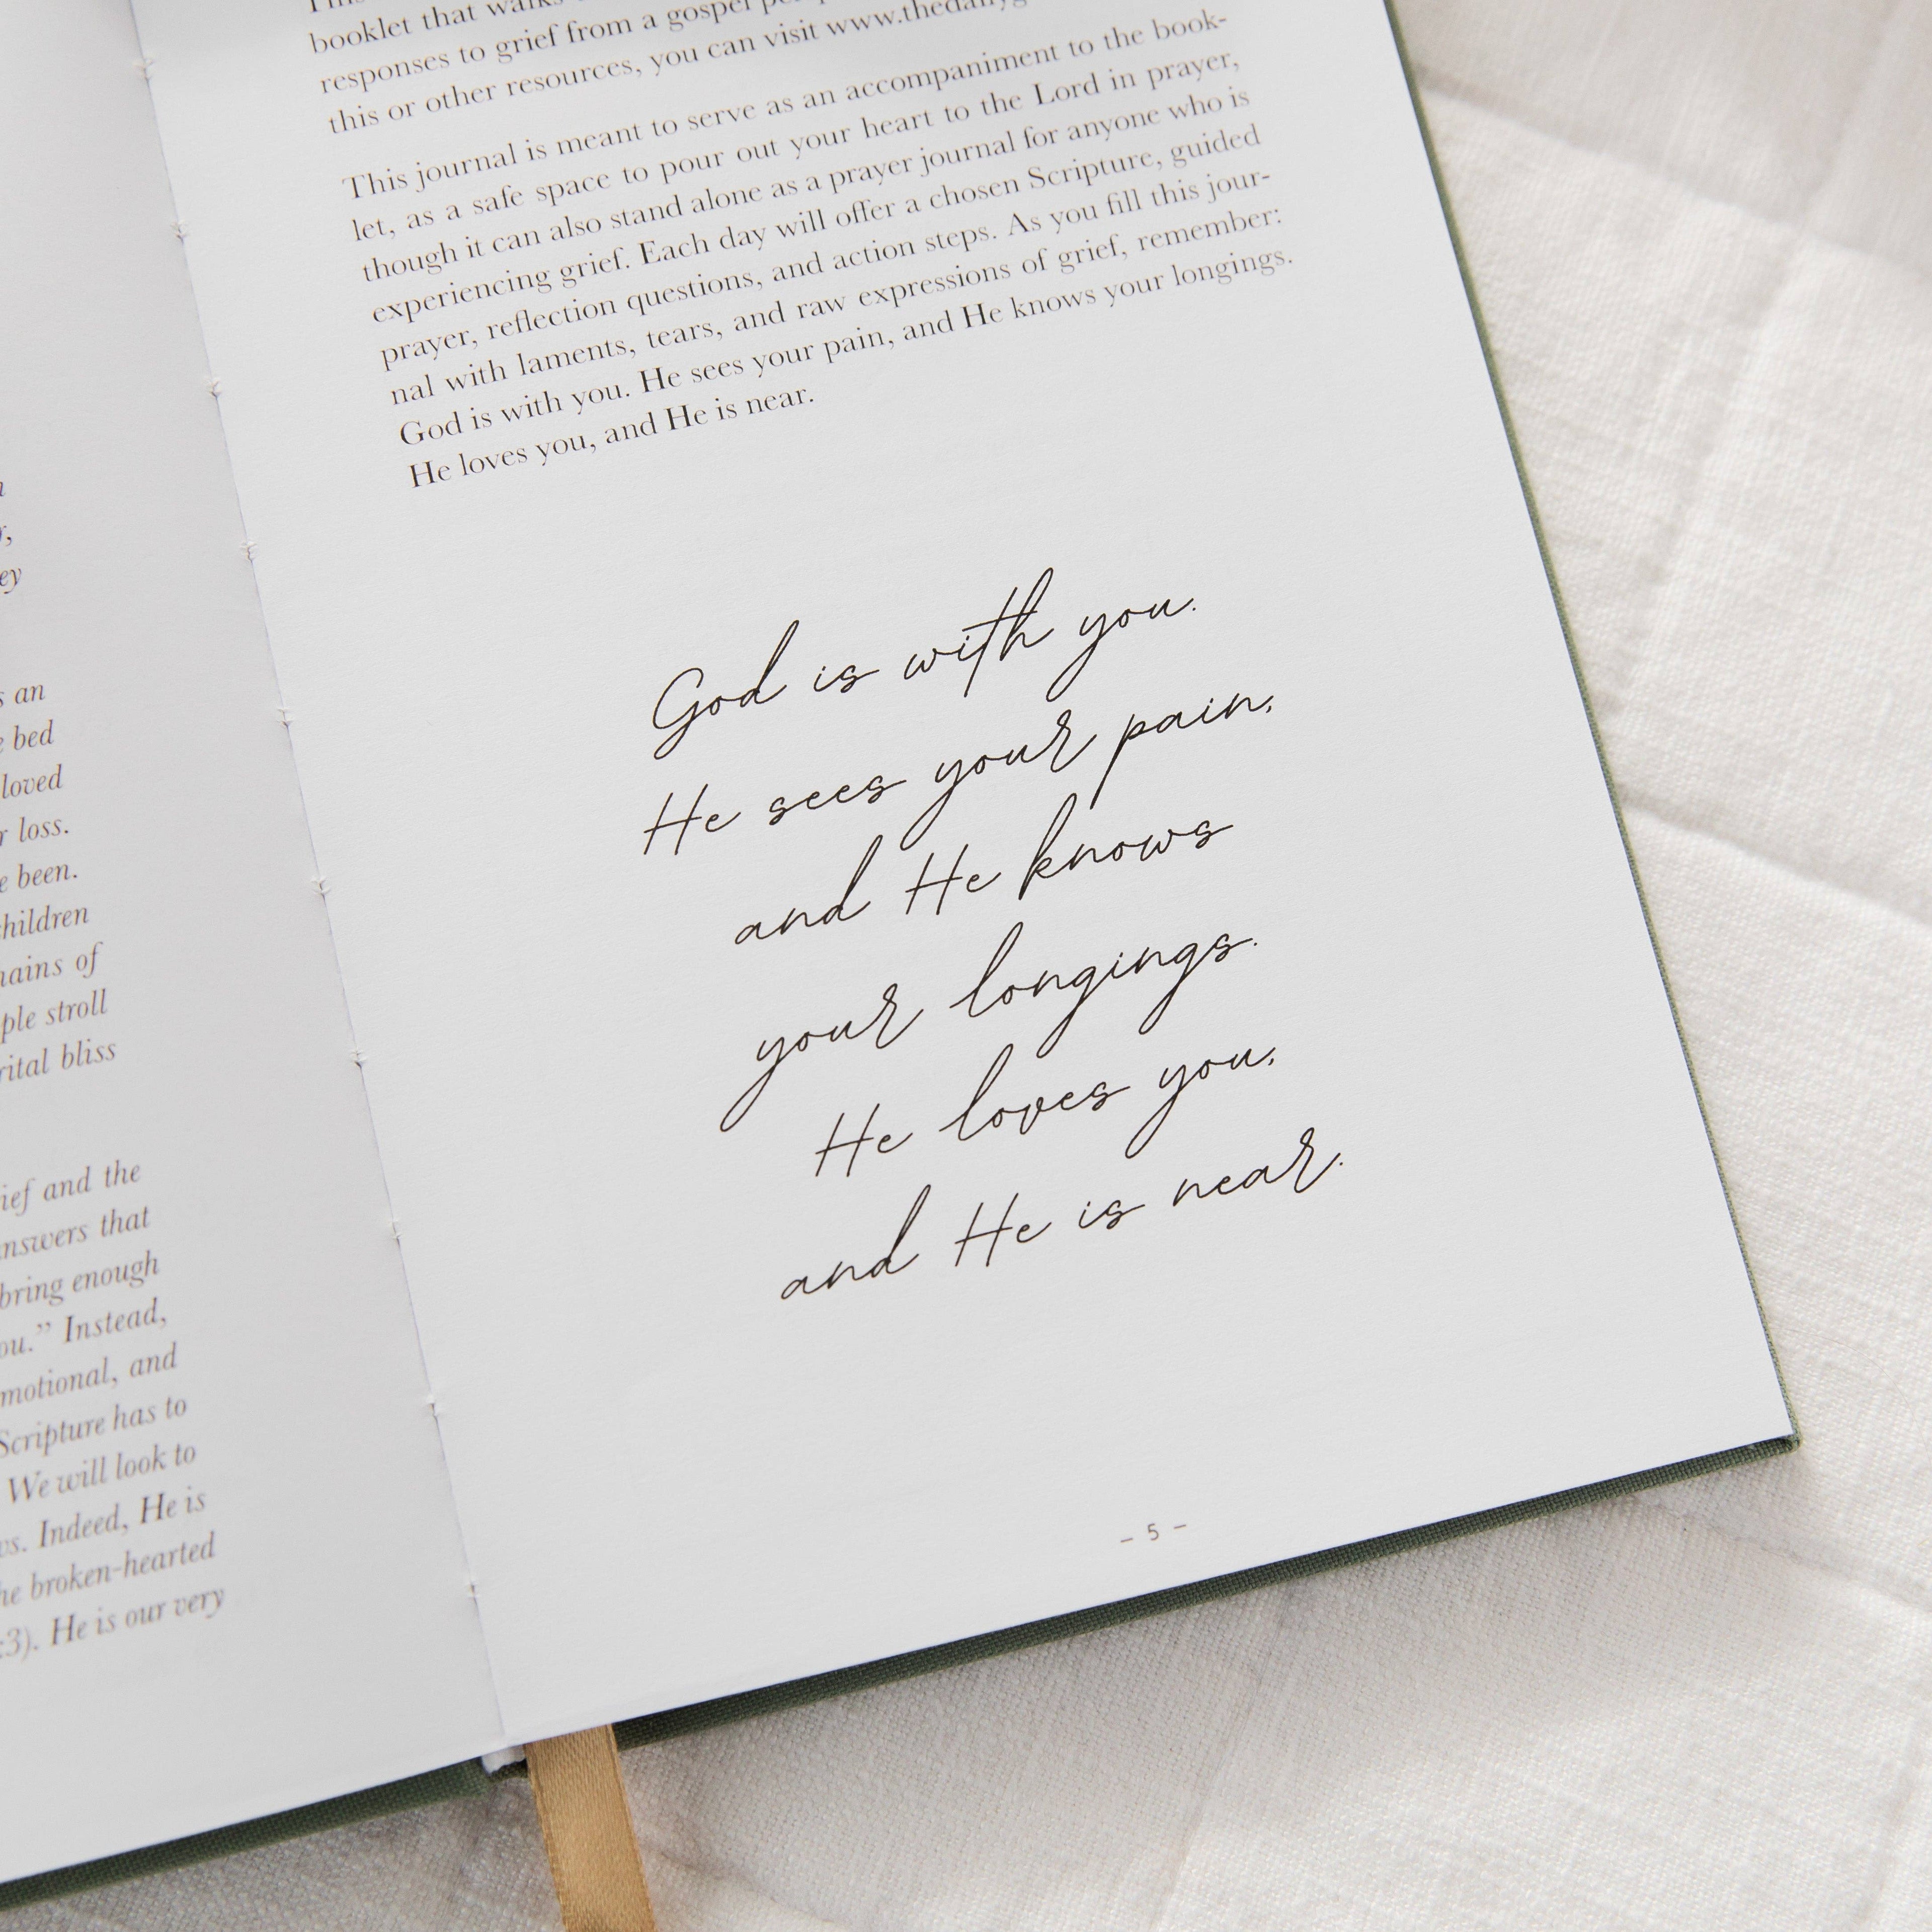 n
r,
ey
s an
e bed
loved
r loss.
e been.
children
nains of
ple stroll
rital bliss
ief and the
nswers that
bring enough
ou.” Instead,
motional, and
Scripture has to
We will look to
vs. Indeed, He is
he broken-hearted
:3). He is our very
booklet that walks
responses to grief from a gospel
this or other resources, you can visit www.thedaily
This journal is meant to serve as an accompaniment to the book-
let, as a safe space to pour out your heart to the Lord in prayer,
though it can also stand alone as a prayer journal for anyone who is
experiencing grief. Each day will offer a chosen Scripture, guided
prayer, reflection questions, and action steps. As you fill this jour-
nal with laments, tears, and raw expressions of grief, remember:
God is with you. He sees your pain, and He knows your longings.
He loves you, and He is near.
God is with you.
He sees your pain,
and He knows
your longings.
He loves you,
and He is near.
– 5 –